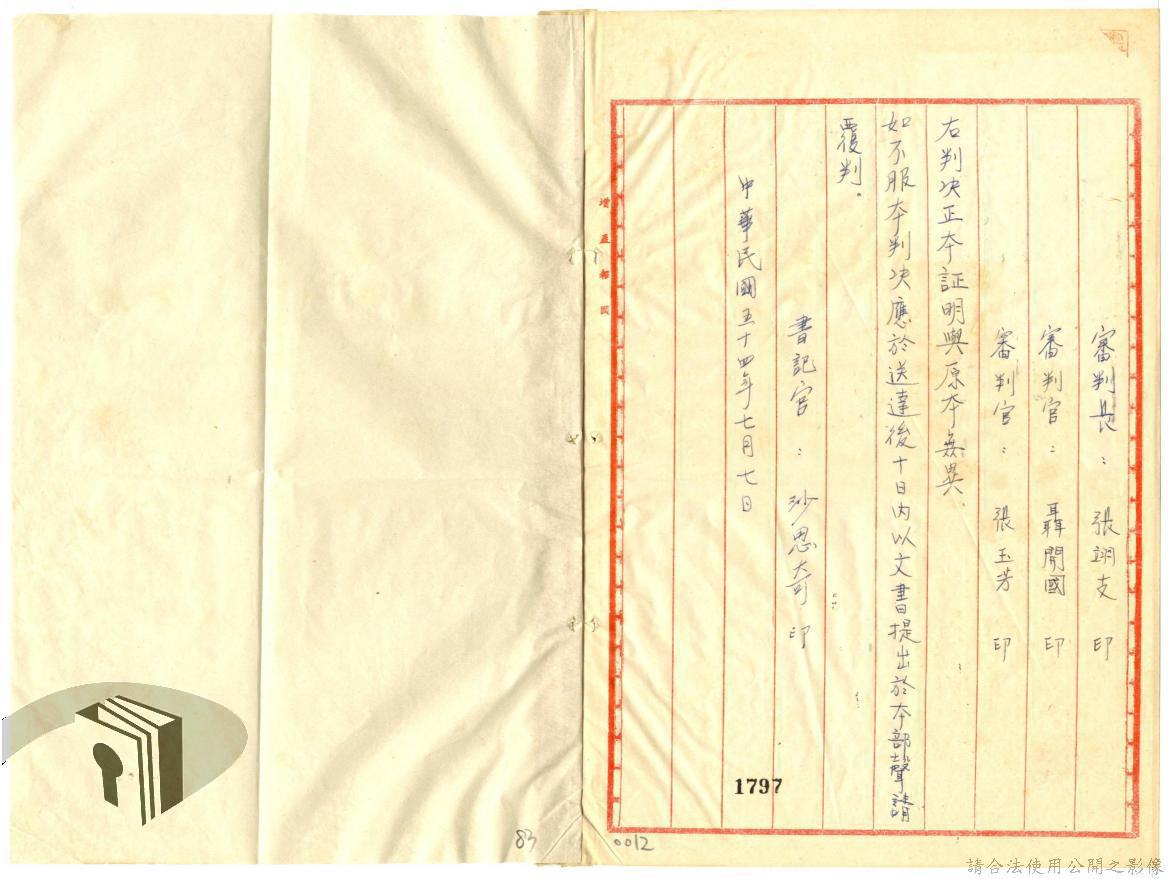 審判長：張翊支 印
審判官：聶開國 印
審判官：張玉芳 印
右判决正本証明與原本無異.
如不服本判决應於送達後十日内以文書提出於本部聲請
覆判.
書記官：沙思奇 印
中華民國五十四年七月七日
1797
0012
83
請合法使用公開之影像